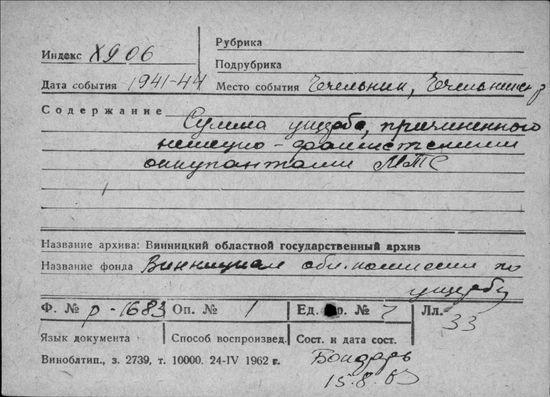 Индекс X906
Рубрика
Подрубрика
Дата события 1941-44
Место события Чечельник, Чечельницк р
Содержание
Сумма ущерба, причиненного
немецко-фашистскими
оккупантами МТС
Название архива: Винницкий областной государственный архив
Название фонда Винницкая обл. комиссия по
ущербу
Ф. № р-1683 Оп. № 1 Ед. хр. № 7 Лл. 33
Язык документа Способ воспроизвед. Сост. и дата сост.
Виноблтип., з. 2739, т. 10000. 24-IV 1962 г. Бондарь
15.8.63